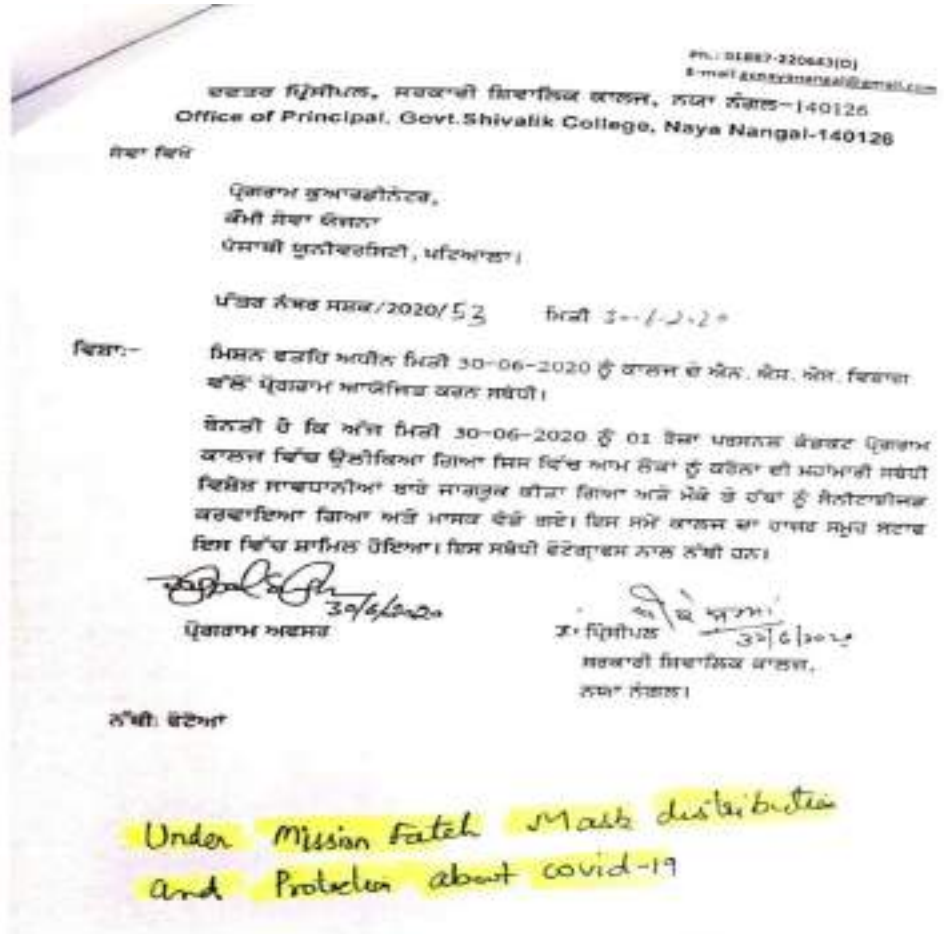 Ph.: 01887-220643(O)
E-mail
ਦਫਤਰ ਪ੍ਰਿੰਸੀਪਲ, ਸਰਕਾਰੀ ਸ਼ਿਵਾਲਿਕ ਕਾਲਜ, ਨਯਾ ਨੰਗਲ-140126
Office of Principal, Govt.Shivalik College, Naya Nangal-140126
ਸੇਵਾ ਵਿਖੇ
ਪ੍ਰੋਗਰਾਮ ਕੁਆਰਡੀਨੇਟਰ,
ਕੌਮੀ ਸੇਵਾ ਯੋਜਨਾ
ਪੰਜਾਬੀ ਯੂਨੀਵਰਸਿਟੀ, ਪਟਿਆਲਾ।
ਪੱਤਰ ਨੰਬਰ ਸਸ਼ਕ/2020/53 ਮਿਤੀ 30-6-2020
ਵਿਸ਼ਾ:- ਮਿਸ਼ਨ ਫਤਹਿ ਅਧੀਨ ਮਿਤੀ 30-06-2020 ਨੂੰ ਕਾਲਜ ਦੇ ਐਨ.ਐਸ.ਐਸ. ਵਿਭਾਗ
ਵੱਲੋਂ ਪ੍ਰੋਗਰਾਮ ਆਯੋਜਿਤ ਕਰਨ ਸਬੰਧੀ।
ਬੇਨਤੀ ਹੈ ਕਿ ਅੱਜ ਮਿਤੀ 30-06-2020 ਨੂੰ 01 ਰੋਜ਼ਾ ਪਰਸਨਲ ਕੰਟੈਕਟ ਪ੍ਰੋਗਰਾਮ
ਕਾਲਜ ਵਿੱਚ ਉਲੀਕਿਆ ਗਿਆ ਜਿਸ ਵਿੱਚ ਆਮ ਲੋਕਾਂ ਨੂੰ ਕਰੋਨਾ ਦੀ ਮਹਾਂਮਾਰੀ ਸਬੰਧੀ
ਵਿਸ਼ੇਸ਼ ਸਾਵਧਾਨੀਆਂ ਬਾਰੇ ਜਾਗਰੂਕ ਕੀਤਾ ਗਿਆ ਅਤੇ ਮੌਕੇ ਤੇ ਹੱਥਾਂ ਨੂੰ ਸੈਨੀਟਾਈਜਡ
ਕਰਵਾਇਆ ਗਿਆ ਅਤੇ ਮਾਸਕ ਵੰਡੇ ਗਏ। ਇਸ ਸਮੇਂ ਕਾਲਜ ਦਾ ਹਾਜਰ ਸਮੂਹ ਸਟਾਫ
ਇਸ ਵਿੱਚ ਸ਼ਾਮਿਲ ਹੋਇਆ। ਇਸ ਸਬੰਧੀ ਫੋਟੋਗ੍ਰਾਫਸ ਨਾਲ ਨੱਥੀ ਹਨ।
30/6/2020
ਪ੍ਰੋਗਰਾਮ ਅਫਸਰ
30/6/2020
ਪ੍ਰਿੰਸੀਪਲ
ਸਰਕਾਰੀ ਸ਼ਿਵਾਲਿਕ ਕਾਲਜ,
ਨਯਾ ਨੰਗਲ।
ਨੱਥੀ: ਫੋਟੋਆਂ
Under Mission Fateh Mask distribution
and Protection about covid-19